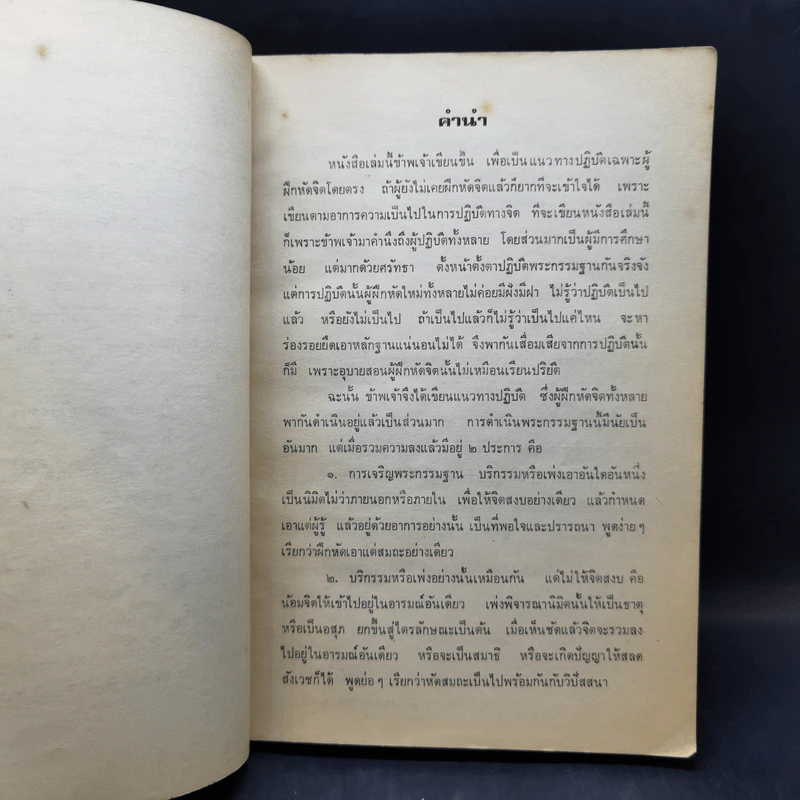 คำนำ
หนังสือเล่มนี้ข้าพเจ้าเขียนขึ้น เพื่อเป็นแนวทางปฏิบัติเฉพาะผู้
ฝึกหัดจิตโดยตรง ถ้าผู้ยังไม่เคยฝึกหัดจิตแล้วก็ยากที่จะเข้าใจได้ เพราะ
เขียนตามอาการความเป็นไปในการปฏิบัติทางจิต ที่จะเขียนหนังสือเล่มนี้
ก็เพราะข้าพเจ้ามาคำนึงถึงผู้ปฏิบัติทั้งหลาย โดยส่วนมากเป็นผู้มีการศึกษา
น้อย แต่มากด้วยศรัทธา ตั้งหน้าตั้งตาปฏิบัติพระกรรมฐานกันจริงจัง
แต่การปฏิบัตินั้นผู้ฝึกหัดใหม่ทั้งหลายไม่ค่อยมีฝั่งมีฝา ไม่รู้ว่าปฏิบัติเป็นไป
แล้ว หรือยังไม่เป็นไป ถ้าเป็นไปแล้วก็ไม่รู้ว่าเป็นไปแค่ไหน จะหา
ร่องรอยยึดเอาหลักฐานแน่นอนไม่ได้ จึงพากันเสื่อมเสียจากการปฏิบัตินั้น
ก็มี เพราะอุบายสอนผู้ฝึกหัดจิตนั้นไม่เหมือนเรียนปริยัติ
ฉะนั้น ข้าพเจ้าจึงได้เขียนแนวทางปฏิบัติ ซึ่งผู้ฝึกหัดจิตทั้งหลาย
พากันดำเนินอยู่แล้วเป็นส่วนมาก การดำเนินพระกรรมฐานนี้มีนัยเป็น
อันมาก แต่เมื่อรวมความลงแล้วมีอยู่ ๒ ประการ คือ
๑. การเจริญพระกรรมฐาน บริกรรมหรือเพ่งเอาอันใดอันหนึ่ง
เป็นนิมิตไม่ว่าภายนอกหรือภายใน เพื่อให้จิตสงบอย่างเดียว แล้วกำหนด
เอาแต่ผู้รู้ แล้วอยู่ด้วยอาการอย่างนั้น เป็นที่พอใจและปรารถนา พูดง่ายๆ
เรียกว่าฝึกหัดเอาแต่สมถะอย่างเดียว
๒. บริกรรมหรือเพ่งอย่างนั้นเหมือนกัน แต่ไม่ให้จิตสงบ คือ
น้อมจิตให้เข้าไปอยู่ในอารมณ์อันเดียว เพ่งพิจารณานิมิตนั้นให้เป็นธาตุ
หรือเป็นอสุภ ยกขึ้นสู่ไตรลักษณะเป็นต้น เมื่อเห็นชัดแล้วจิตจะรวมลง
ไปอยู่ในอารมณ์อันเดียว หรือจะเป็นสมาธิ หรือจะเกิดปัญญาให้สลด
สังเวชก็ได้ พูดย่อๆ เรียกว่าหัดสมถะเป็นไปพร้อมกันกับวิปัสสนา